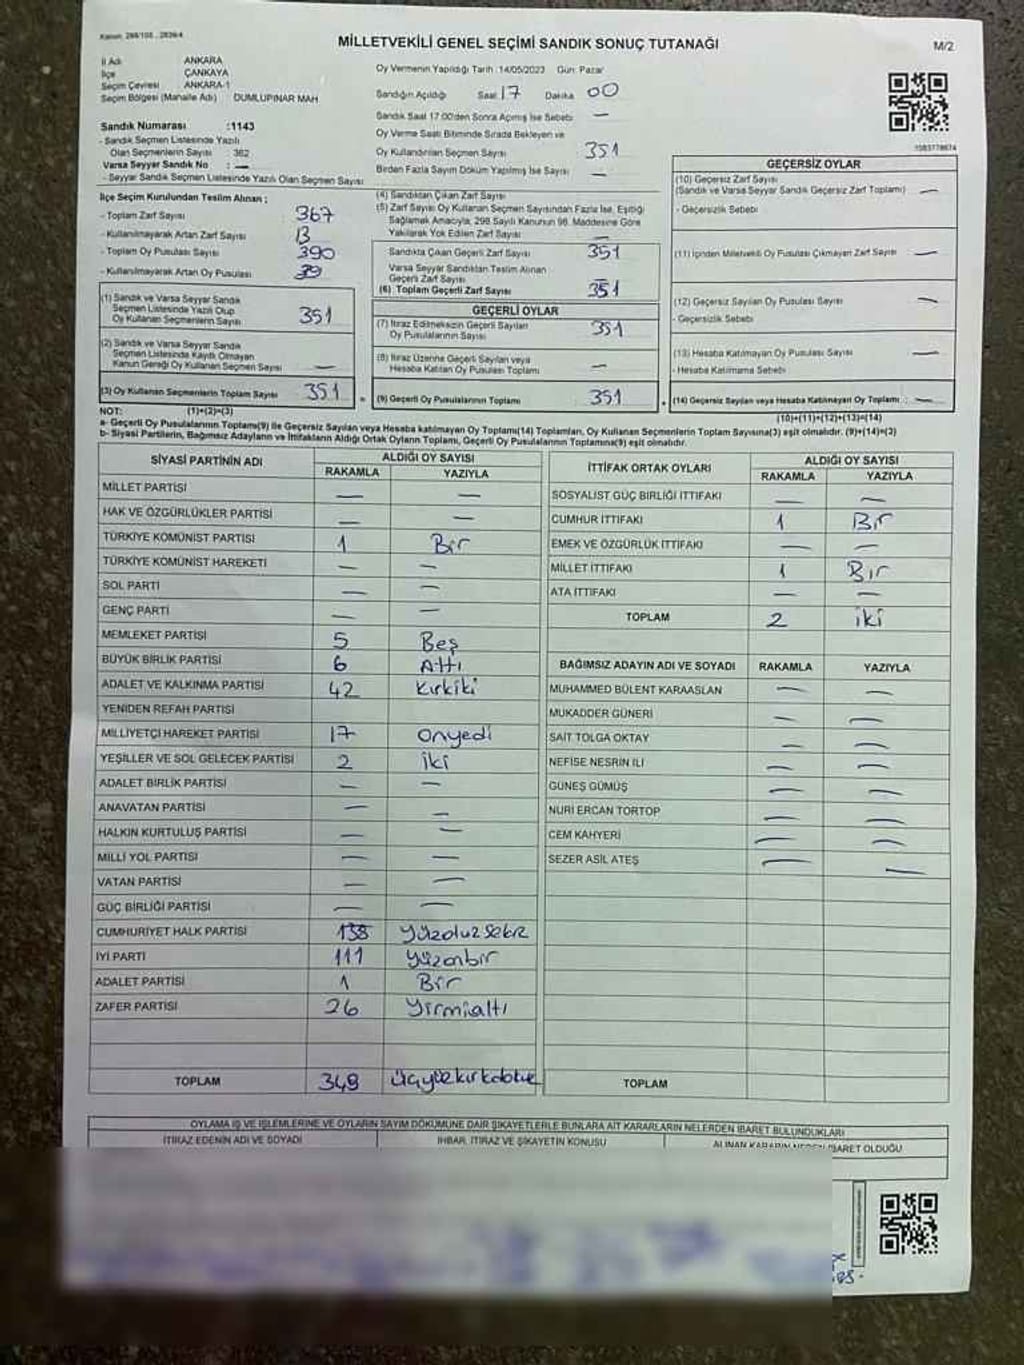 Kanun: 298/105 , 2839/4
MİLLETVEKİLİ GENEL SEÇİMİ SANDIK SONUÇ TUTANAĞI
M/2
İl Adı ANKARA
İlçe ÇANKAYA
Seçim Çevresi ANKARA-1
Seçim Bölgesi (Mahalle Adı) DUMLUPINAR MAH
Sandık Numarası :1143
- Sandık Seçmen Listesinde Yazılı
Olan Seçmenlerin Sayısı : 362
Varsa Seyyar Sandık No : —
- Seyyar Sandık Seçmen Listesinde Yazılı Olan Seçmen Sayısı
Oy Vermenin Yapıldığı Tarih :14/05/2023 Gün: Pazar
Sandığın Açıldığı Saat 17 Dakika 00
Sandık Saat 17.00'den Sonra Açılmış İse Sebebi —
Oy Verme Saati Bitiminde Sırada Bekleyen ve
Oy Kullandırılan Seçmen Sayısı 351
Birden Fazla Sayım Döküm Yapılmış İse Sayısı —
İlçe Seçim Kurulundan Teslim Alınan ;
- Toplam Zarf Sayısı 367
- Kullanılmayarak Artan Zarf Sayısı 13
- Toplam Oy Pusulası Sayısı 390
- Kullanılmayarak Artan Oy Pusulası 39
(1) Sandık ve Varsa Seyyar Sandık
Seçmen Listesinde Yazılı Olup
Oy Kullanan Seçmenlerin Sayısı 351
(2) Sandık ve Varsa Seyyar Sandık
Seçmen Listesinde Kayıtlı Olmayan
Kanun Gereği Oy Kullanan Seçmen Sayısı —
(3) Oy Kullanan Seçmenlerin Toplam Sayısı 351
(4) Sandıktan Çıkan Zarf Sayısı
(5) Zarf Sayısı Oy Kullanan Seçmen Sayısından Fazla İse, Eşitliği
Sağlamak Amacıyla, 298 Sayılı Kanunun 98. Maddesine Göre
Yakılarak Yok Edilen Zarf Sayısı —
Sandıkta Çıkan Geçerli Zarf Sayısı 351
Varsa Seyyar Sandıktan Teslim Alınan
Geçerli Zarf Sayısı —
(6) Toplam Geçerli Zarf Sayısı 351
GEÇERLİ OYLAR
(7) İtiraz Edilmeksizin Geçerli Sayılan
Oy Pusulalarının Sayısı 351
(8) İtiraz Üzerine Geçerli Sayılan veya
Hesaba Katılan Oy Pusulası Toplamı —
(9) Geçerli Oy Pusulalarının Toplamı 351
GEÇERSİZ OYLAR
(10) Geçersiz Zarf Sayısı
(Sandık ve Varsa Seyyar Sandık Geçersiz Zarf Toplamı) —
- Geçersizlik Sebebi
(11) İçinden Milletvekili Oy Pusulası Çıkmayan Zarf Sayısı —
(12) Geçersiz Sayılan Oy Pusulası Sayısı —
- Geçersizlik Sebebi
(13) Hesaba Katılmayan Oy Pusulası Sayısı —
- Hesaba Katılmama Sebebi
(14) Geçersiz Sayılan veya Hesaba Katılmayan Oy Toplamı : —
NOT: (1)+(2)=(3)
(10)+(11)+(12)+(13)=(14)
a- Geçerli Oy Pusulalarının Toplamı(9) ile Geçersiz Sayılan veya Hesaba katılmayan Oy Toplamı(14) Toplamları, Oy Kullanan Seçmenlerin Toplam Sayısına(3) eşit olmalıdır. (9)+(14)=(3)
b- Siyasi Partilerin, Bağımsız Adayların ve İttifakların Aldığı Ortak Oyların Toplamı, Geçerli Oy Pusulalarının Toplamına(9) eşit olmalıdır.
SİYASİ PARTİNİN ADI ALDIĞI OY SAYISI
RAKAMLA YAZIYLA
MİLLET PARTİSİ — —
HAK VE ÖZGÜRLÜKLER PARTİSİ — —
TÜRKİYE KOMÜNİST PARTİSİ 1 Bir
TÜRKİYE KOMÜNİST HAREKETİ — —
SOL PARTİ — —
GENÇ PARTİ — —
MEMLEKET PARTİSİ 5 Beş
BÜYÜK BİRLİK PARTİSİ 6 Altı
ADALET VE KALKINMA PARTİSİ 42 Kırkiki
YENİDEN REFAH PARTİSİ
MİLLİYETÇİ HAREKET PARTİSİ 17 Onyedi
YEŞİLLER VE SOL GELECEK PARTİSİ 2 İki
ADALET BİRLİK PARTİSİ — —
ANAVATAN PARTİSİ — —
HALKIN KURTULUŞ PARTİSİ — —
MİLLİ YOL PARTİSİ — —
VATAN PARTİSİ — —
GÜÇ BİRLİĞİ PARTİSİ — —
CUMHURİYET HALK PARTİSİ 138
İYİ PARTİ 111 Yüzonbir
ADALET PARTİSİ 1 Bir
ZAFER PARTİSİ 26 Yirmialtı
TOPLAM 349
İTTİFAK ORTAK OYLARI ALDIĞI OY SAYISI
RAKAMLA YAZIYLA
SOSYALİST GÜÇ BİRLİĞİ İTTİFAKI — —
CUMHUR İTTİFAKI 1 Bir
EMEK VE ÖZGÜRLÜK İTTİFAKI — —
MİLLET İTTİFAKI 1 Bir
ATA İTTİFAKI — —
TOPLAM 2 İki
BAĞIMSIZ ADAYIN ADI VE SOYADI RAKAMLA YAZIYLA
MUHAMMED BÜLENT KARAASLAN — —
MUKADDER GÜNERİ — —
SAİT TOLGA OKTAY — —
NEFİSE NESRİN İLİ — —
GÜNEŞ GÜMÜŞ — —
NURİ ERCAN TORTOP — —
CEM KAHYERİ — —
SEZER ASİL ATEŞ — —
TOPLAM
OYLAMA İŞ VE İŞLEMLERİNE VE OYLARIN SAYIM DÖKÜMÜNE DAİR ŞİKAYETLERLE BUNLARA AİT KARARLARIN NELERDEN İBARET BULUNDUKLARI
İTİRAZ EDENİN ADI VE SOYADI İHBAR, İTİRAZ VE ŞİKAYETİN KONUSU ALINAN KARARIN NEDEN İBARET OLDUĞU